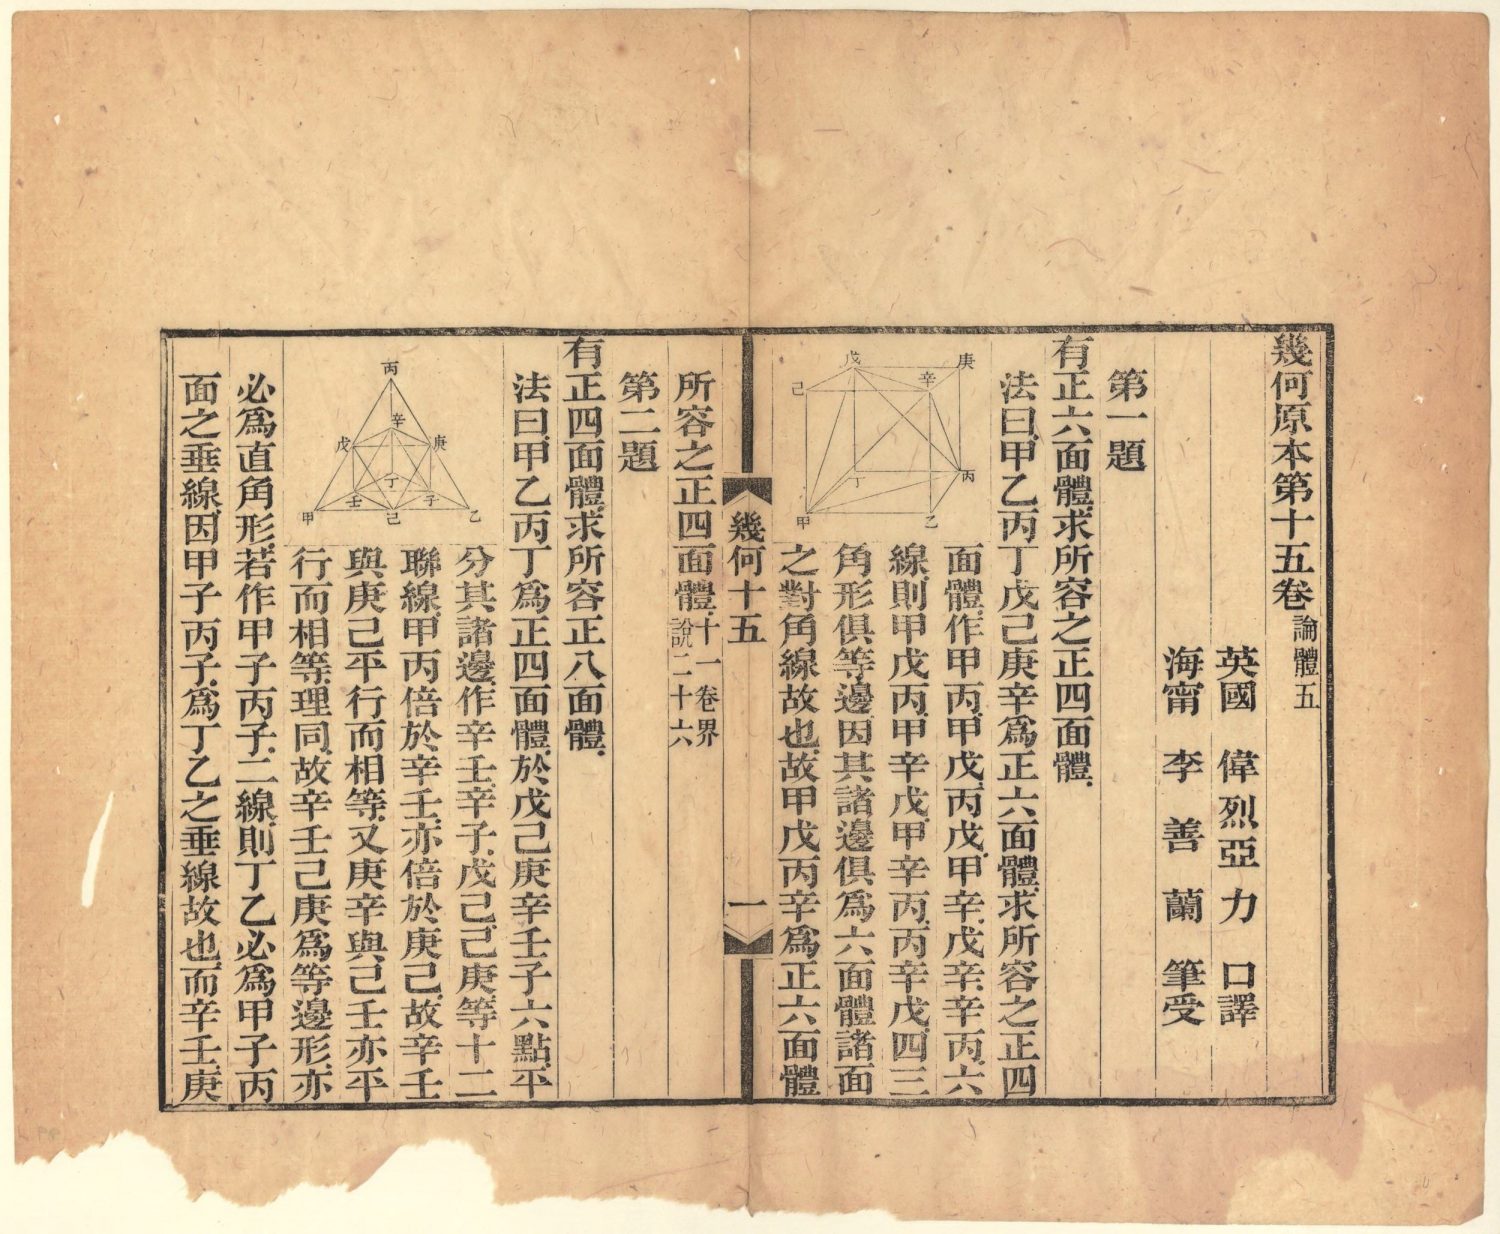 幾何原本第十五卷 論體五
英國 偉烈亞力 口譯
海甯 李善蘭 筆受
第一題
有正六面體求所容之正四面體.
法曰.甲乙丙丁戊己庚辛爲正六面體.求所容之正四
面體.作甲丙.甲戊.丙戊.甲辛.戊辛.辛丙.六
線.則甲戊丙.甲辛戊.甲辛丙.丙辛戊.四三
角形俱等邊.因其諸邊俱爲六面體諸面
之對角線故也.故甲戊丙辛爲正六面體
戊
庚
己
辛
丁
丙
甲
乙
所容之正四面體.十一卷界
說二十六
幾何十五
一
第二題
有正四面體.求所容正八面體.
法曰.甲乙丙丁爲正四面體.於戊己庚辛壬子六點.平
分其諸邊.作辛壬.辛子.戊己.己庚.等十二
聯線.甲丙倍於辛壬.亦倍於庚己.故辛壬
與庚己平行而相等.又庚辛與己壬亦平
行而相等.理同.故辛壬己庚爲等邊形.亦
丙
辛
戊
庚
丁
壬
子
甲
己
乙
必爲直角形.若作甲子丙子.二線.則丁乙必爲甲子丙
面之垂線.因甲子丙子.爲丁乙之垂線故也.而辛壬.庚